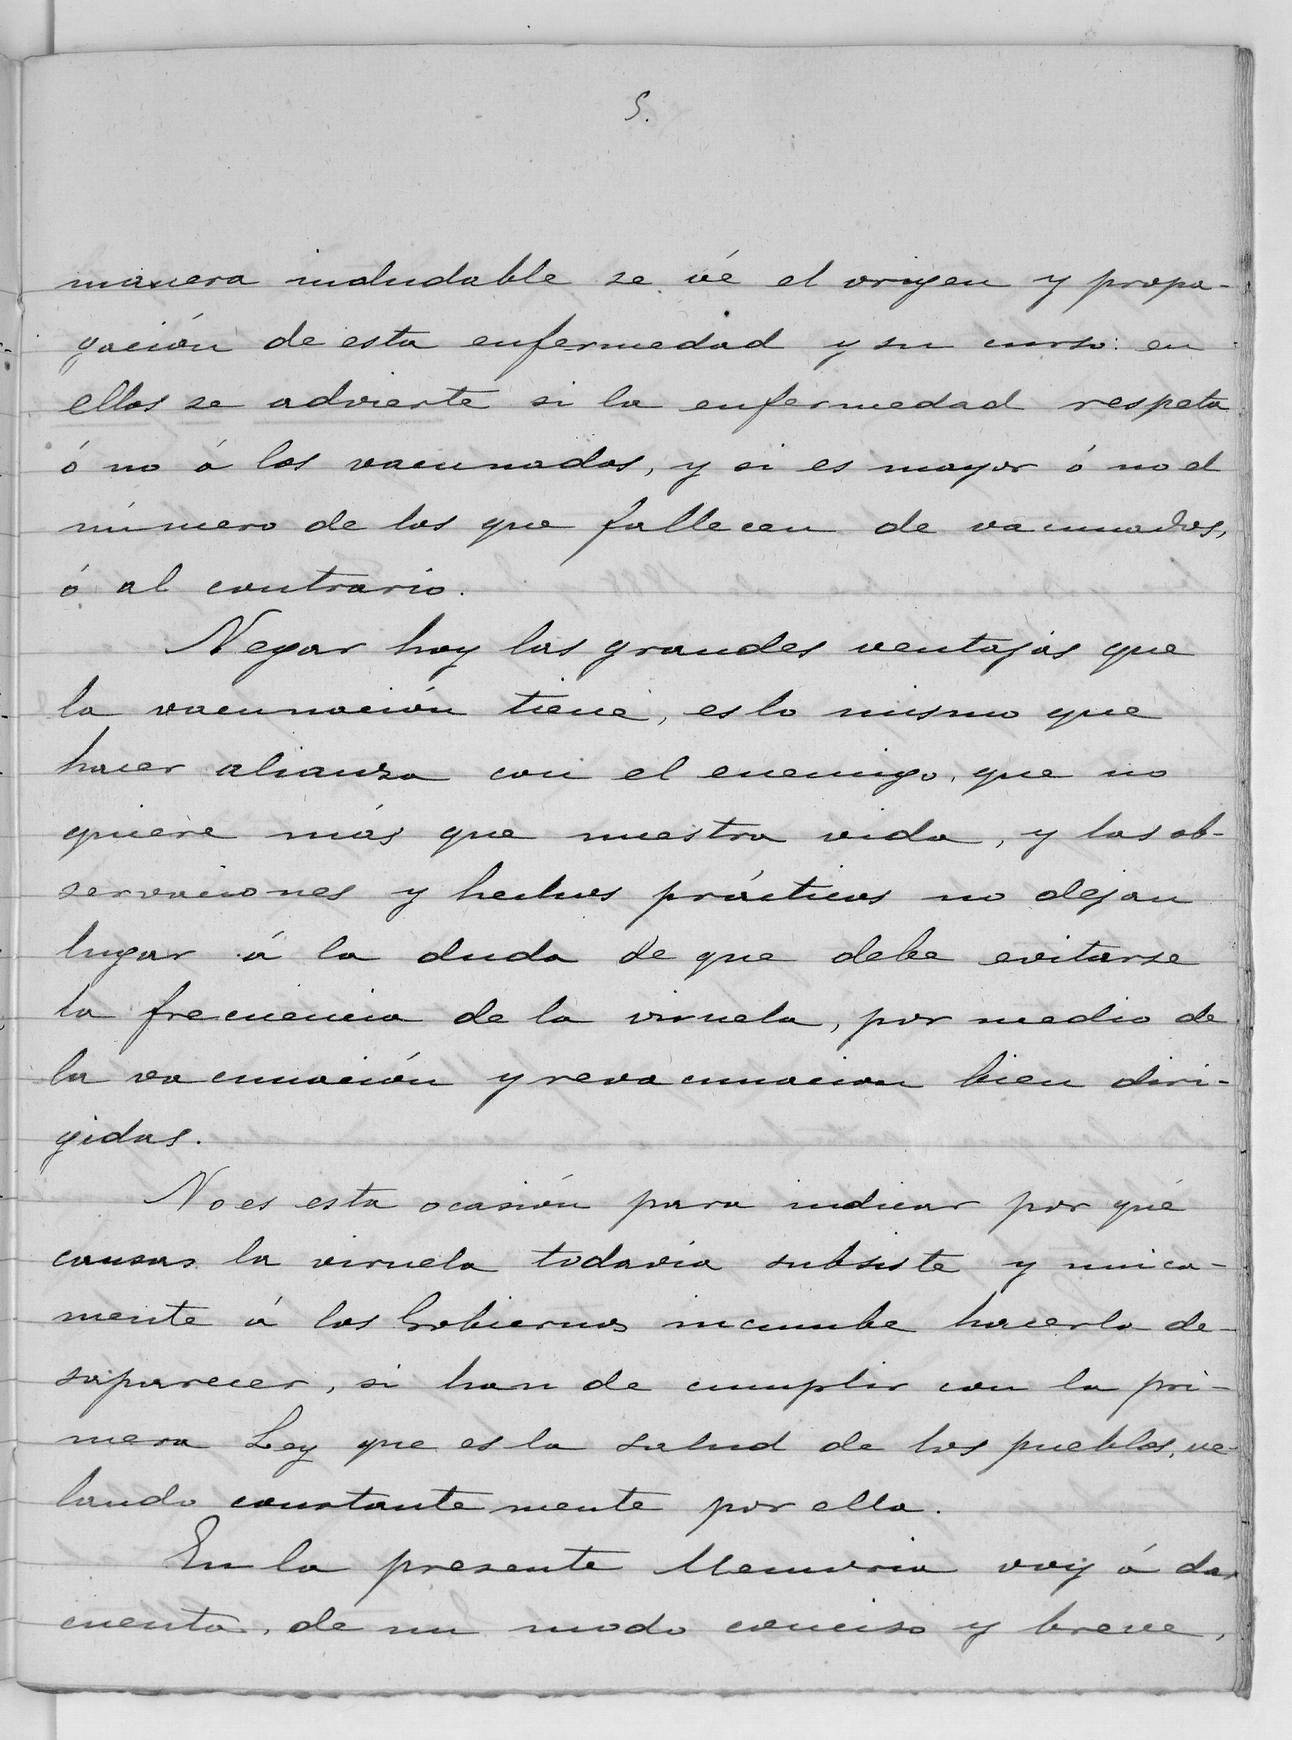 5.
manera indudable se vé el origen y propa-
gación de esta enfermedad y su curso: en
ellos se advierte si la enfermedad respeta
ó no á los vacunados, y si es mayor ó no el
número de los que fallecen de vacunados,
ó al contrario.
Negar hoy las grandes ventajas que
la vacunación tiene, es lo mismo que
hacer alianza con el enemigo, que no
quiere más que nuestra vida, y las ob-
servaciones y hechos prácticos no dejan
lugar á la duda de que debe evitarse
la frecuencia de la viruela, por medio de
la vacunación y revacunacion bien diri-
gidas.
No es esta ocasión para indicar por qué
causas la viruela todavia subsiste y unica-
mente á los Gobiernos incumbe hacerla de-
saparecer, si han de cumplir con la pri-
mera Ley que es la salud de los pueblos, ve-
lando constantemente por ella.
En la presente Memoria voy á dar
cuenta, de un modo conciso y breve,